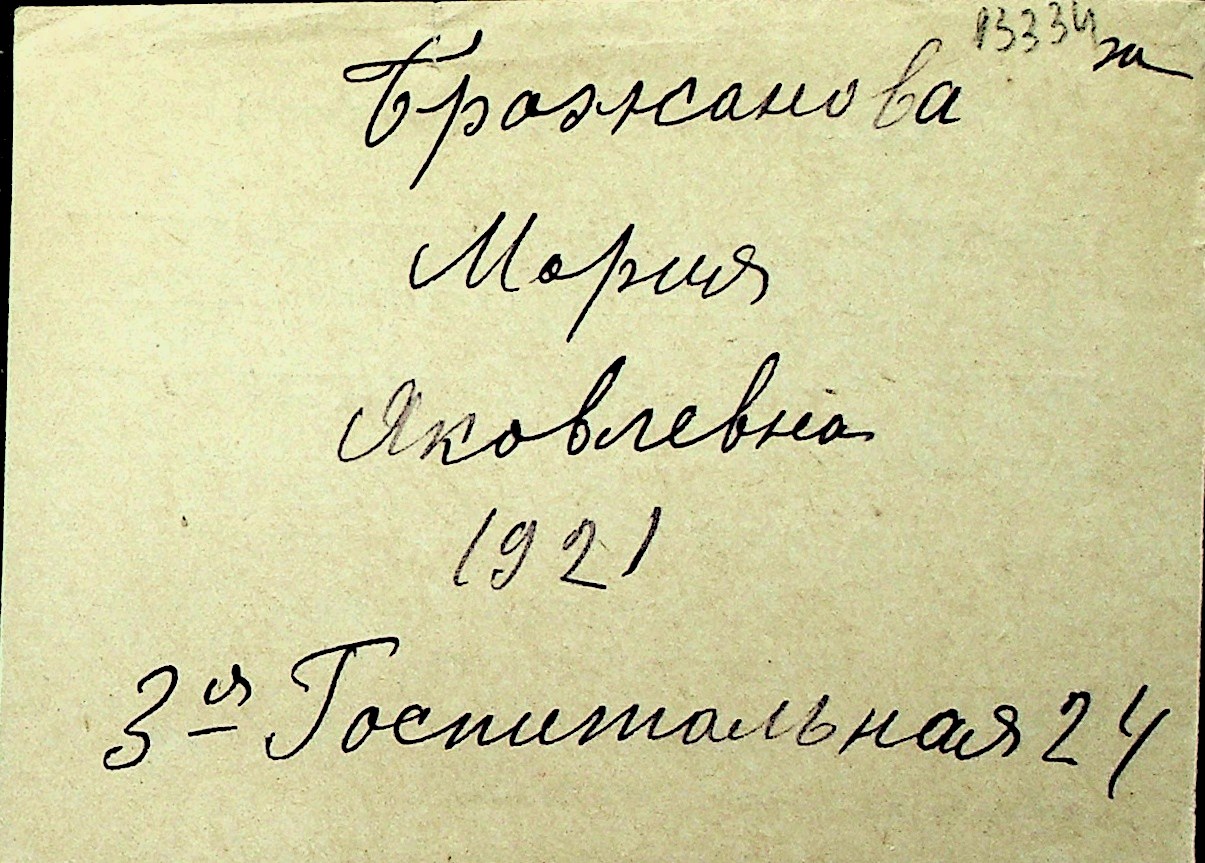 13334 за
Брожанова
Мария
Яковлевна
1921
3-я Госпитальная 24